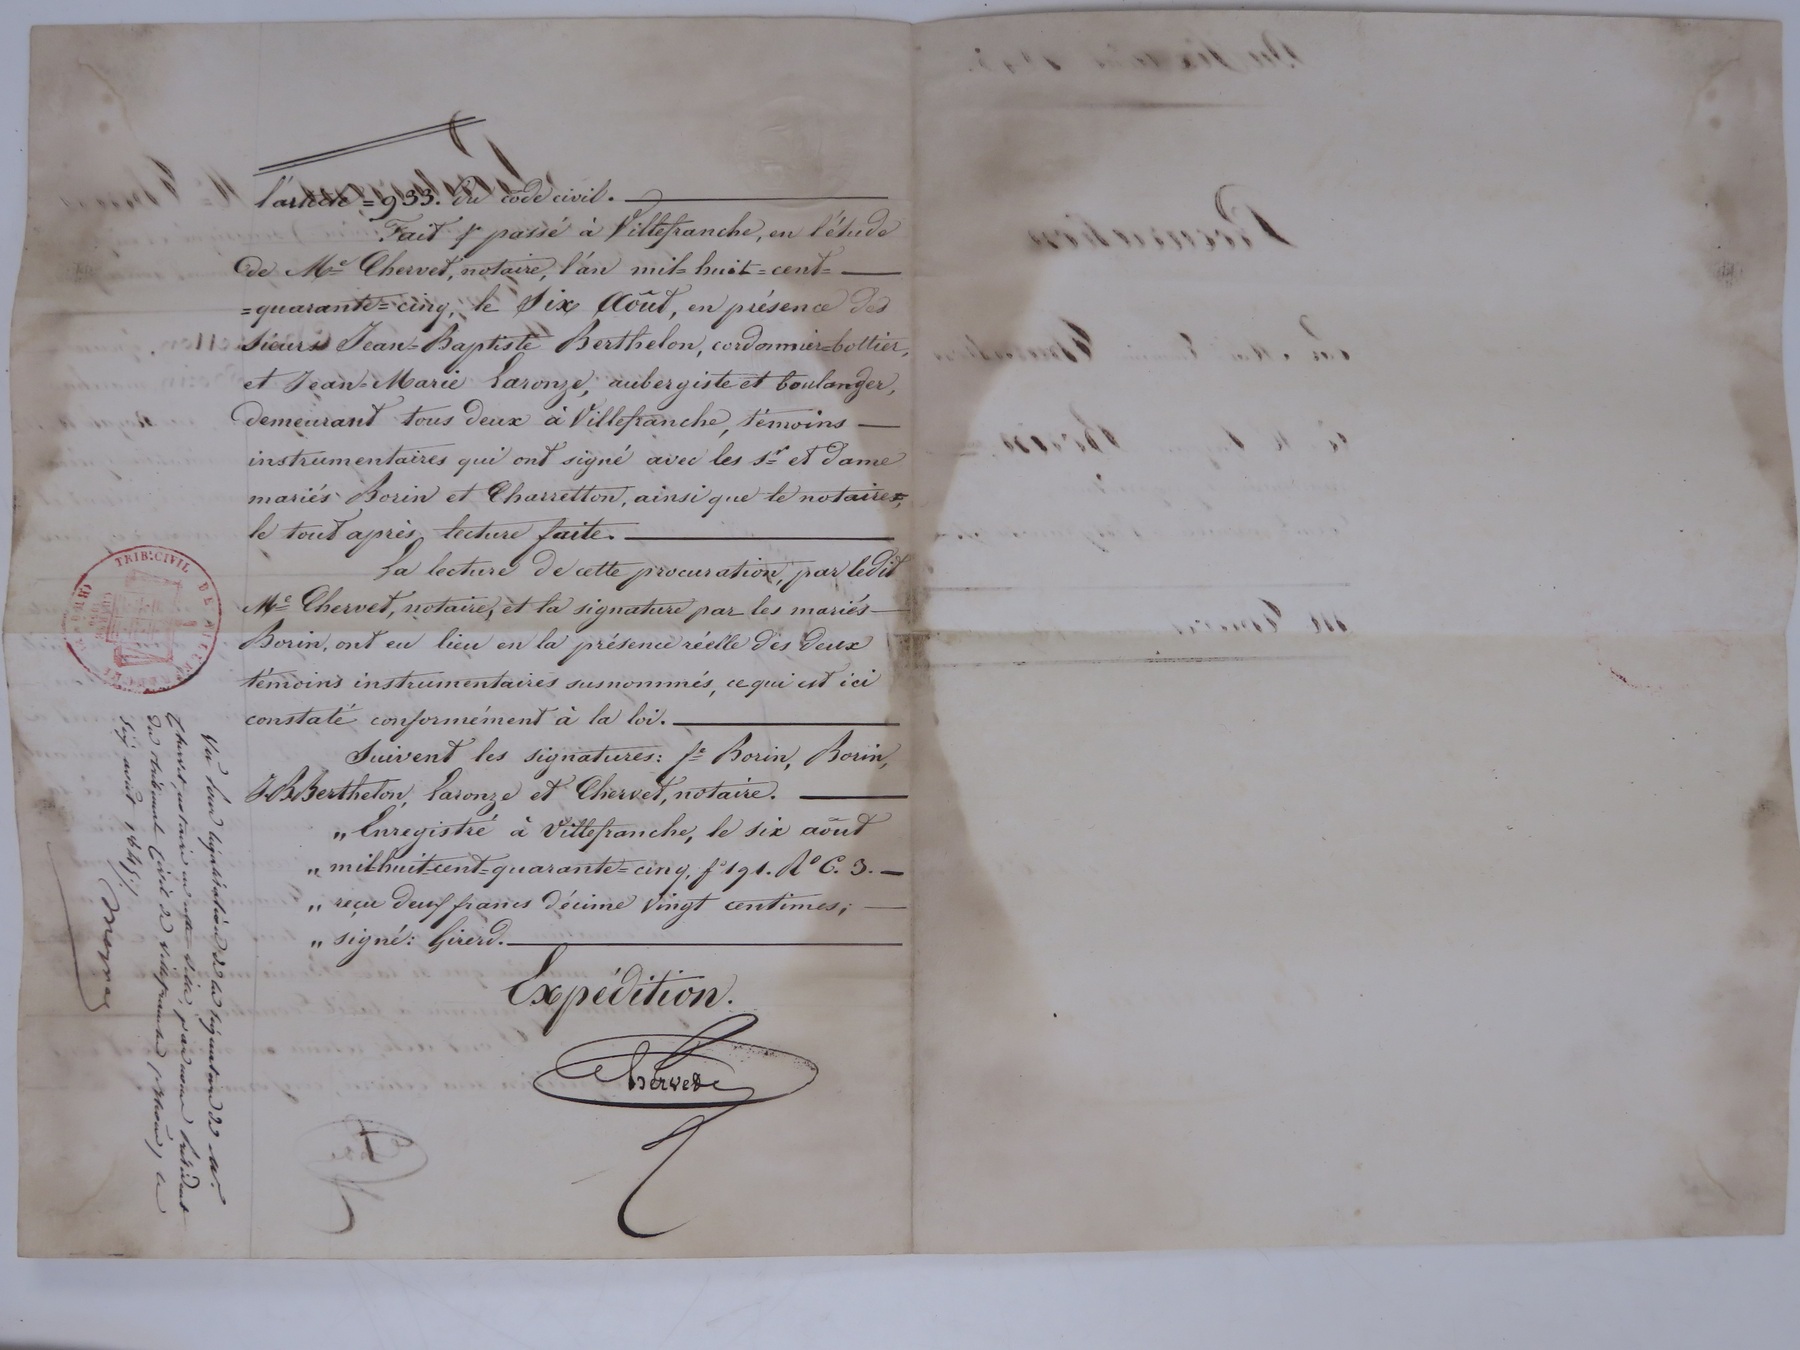 l'article = 933. du code civil.
Fait & passé à Villefranche, en l'étude
de Me Chervet, notaire, l'an mil=huit=cent=
=quarante=cinq, le Six Août, en présence des
sieurs Jean=Baptiste Berthelon, cordonnier=bottier,
et Jean=Marie Laronze, aubergiste et boulanger,
demeurant tous deux à Villefranche, témoins
instrumentaires qui ont signé avec les sr et dame
mariés Borin et Charretton, ainsi que le notaire,
le tout après lecture faite.
La lecture de cette procuration, par ledit
Me Chervet, notaire, et la signature par les mariés
Borin, ont eu lieu en la présence réelle des deux
témoins instrumentaires susnommés, ce qui est ici
constaté conformément à la loi.
Suivent les signatures: fe Borin, Borin,
J.B. Berthelon, Laronze et Chervet, notaire.
„ Enregistré à Villefranche, le six août
„ mil-huit-cent-quarante=cinq, fo 191. Ro C. 3.
„ reçu deux francs décime vingt centimes;
„ signé: Girerd.
Expédition.
Chervet
TRIB: CIVIL DE VILLEFRANCHE
Vu pour légalisation de la signature de Mr
Chervet, notaire en cette ville, par nous Président
du tribunal Civil de Villefranche (Rhône) le
six août 1845.
Procuration